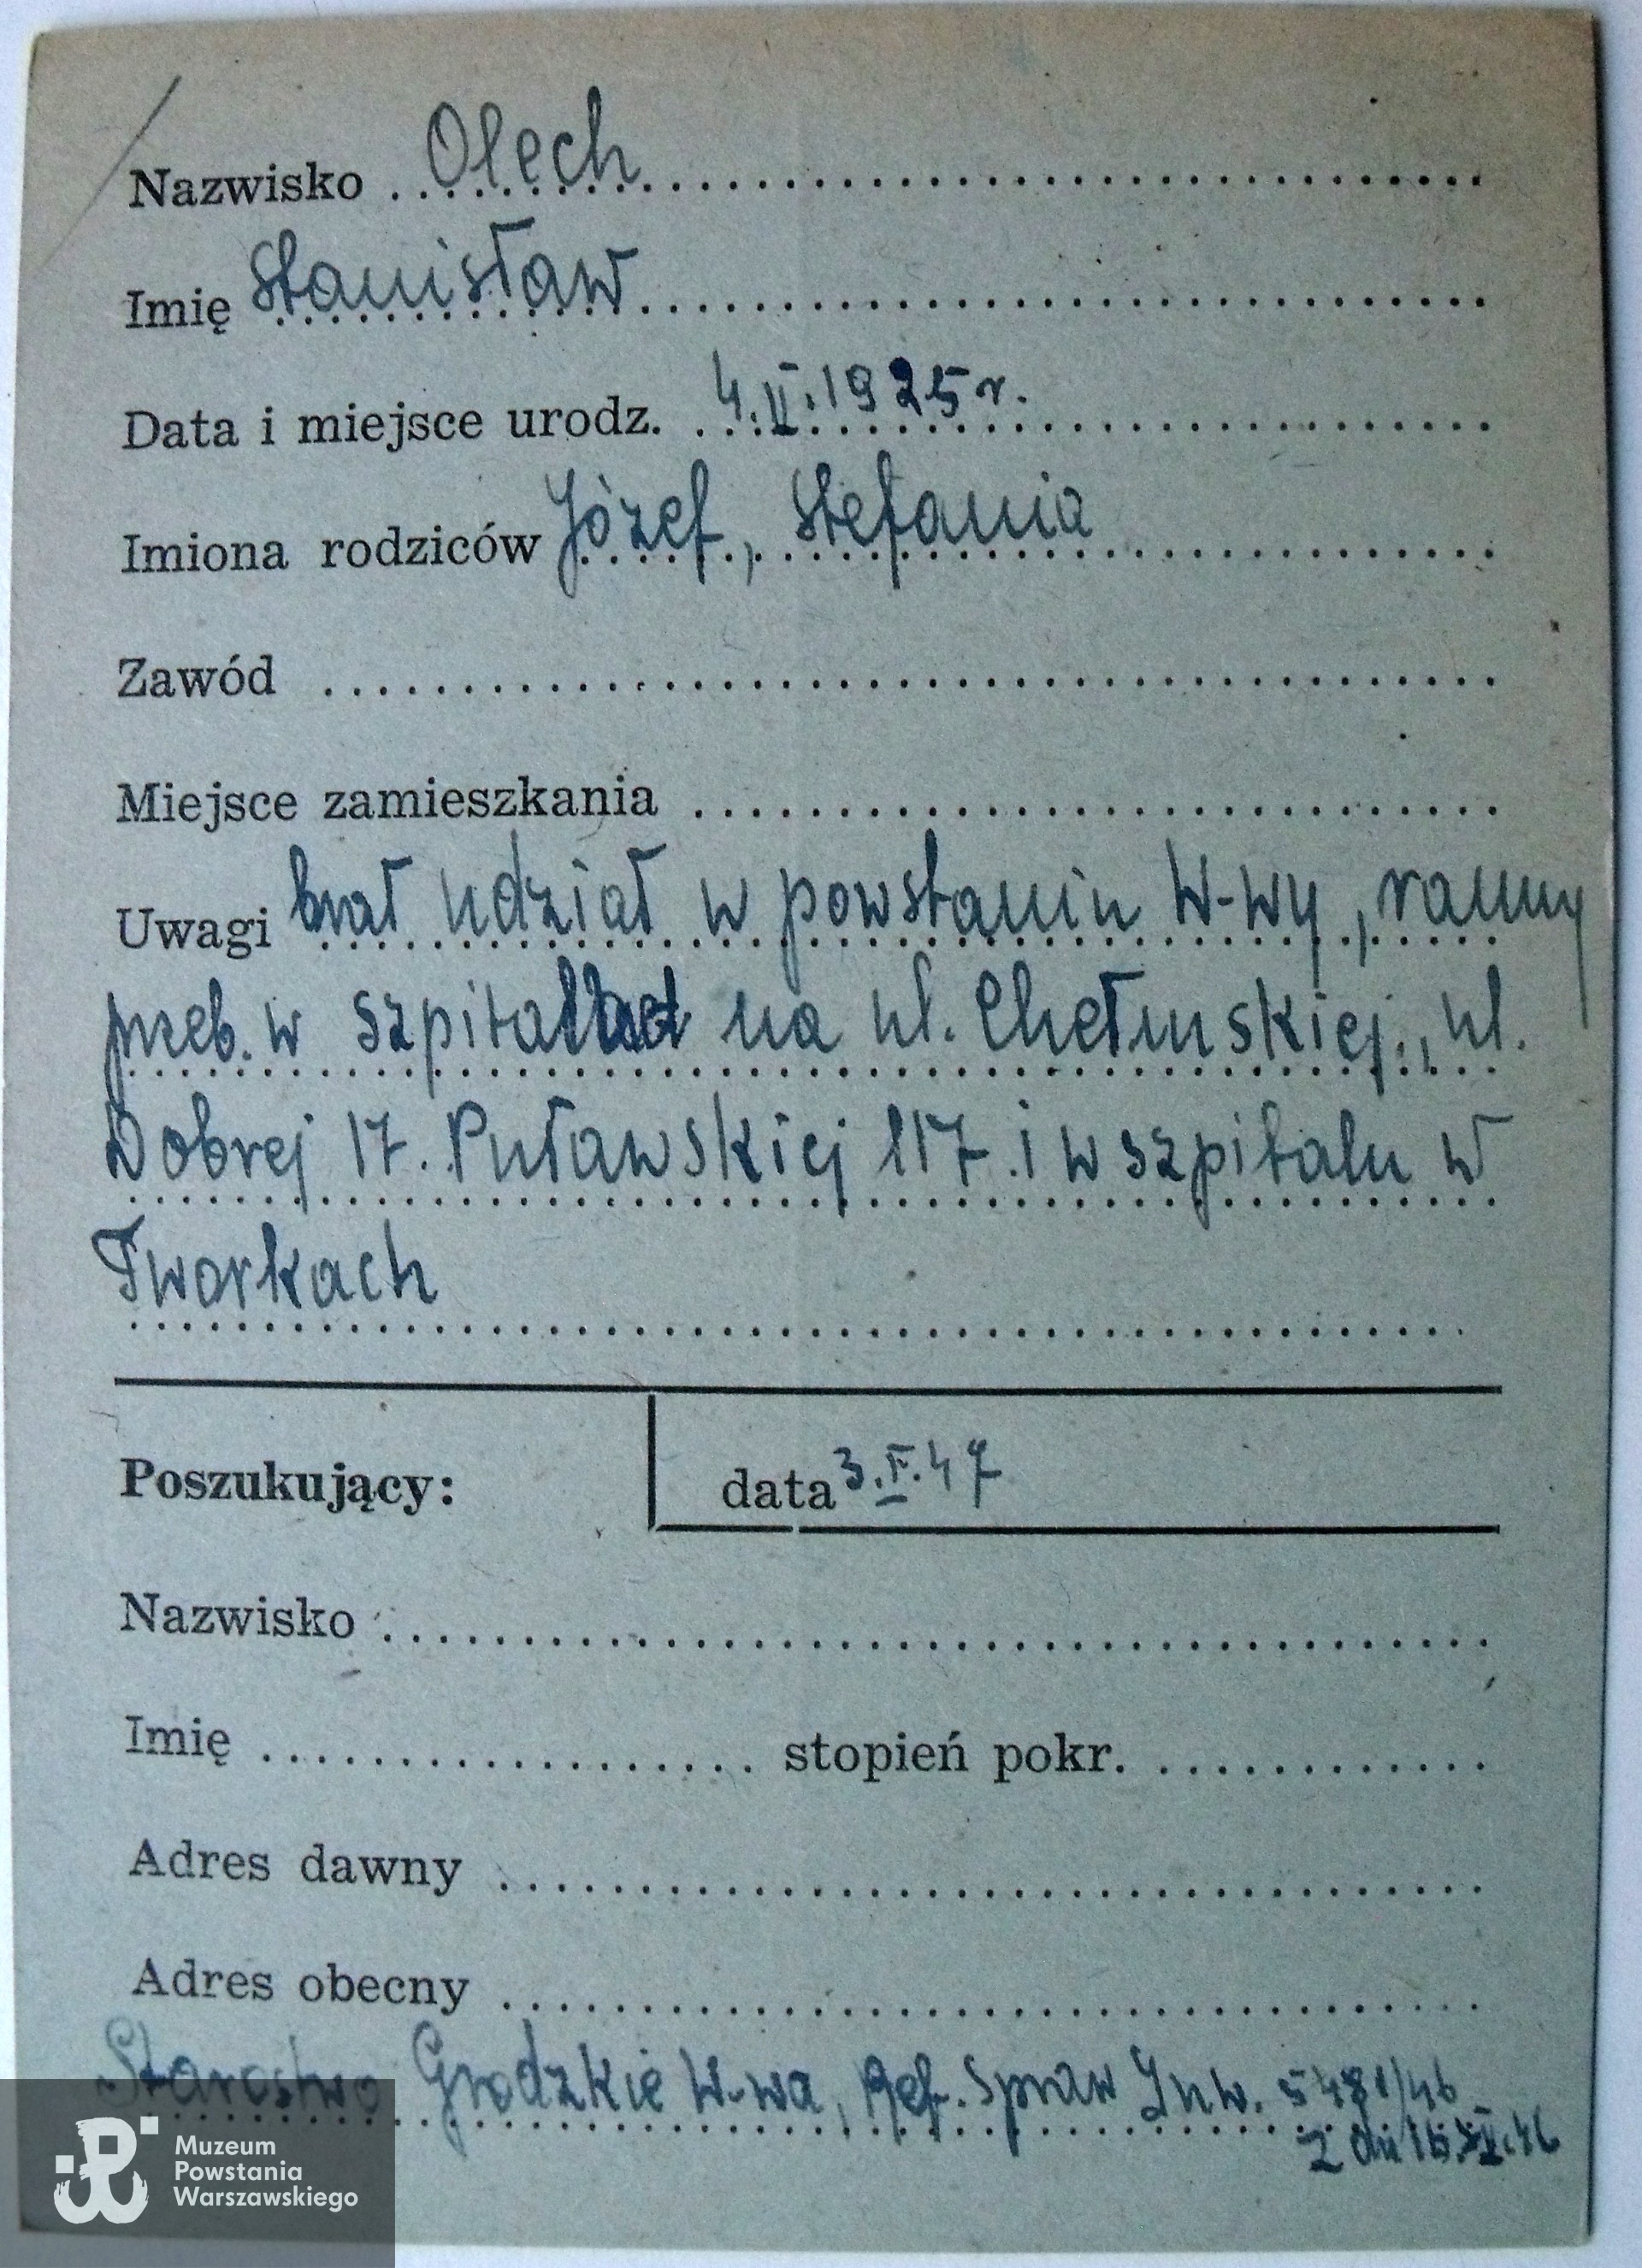 Nazwisko Olech
Imię Stanisław
Data i miejsce urodz. 4.II.1925 r.
Imiona rodziców Józef, Stefania
Zawód
Miejsce zamieszkania
Uwagi brał udział w powstaniu W-wy, ranny
przeb. w na ul. Chełmskiej, ul.
Dobrej 17. Puławskiej 117. i w szpitalu w
Tworkach
Poszukujący:
data 3.I.47
Nazwisko
Imię stopień pokr.
Adres dawny
Adres obecny
Starostwo Grodzkie W-wa, Ref. Spraw Inw. 5481/46
z dn 16.46
Muzeum
Powstania
Warszawskiego